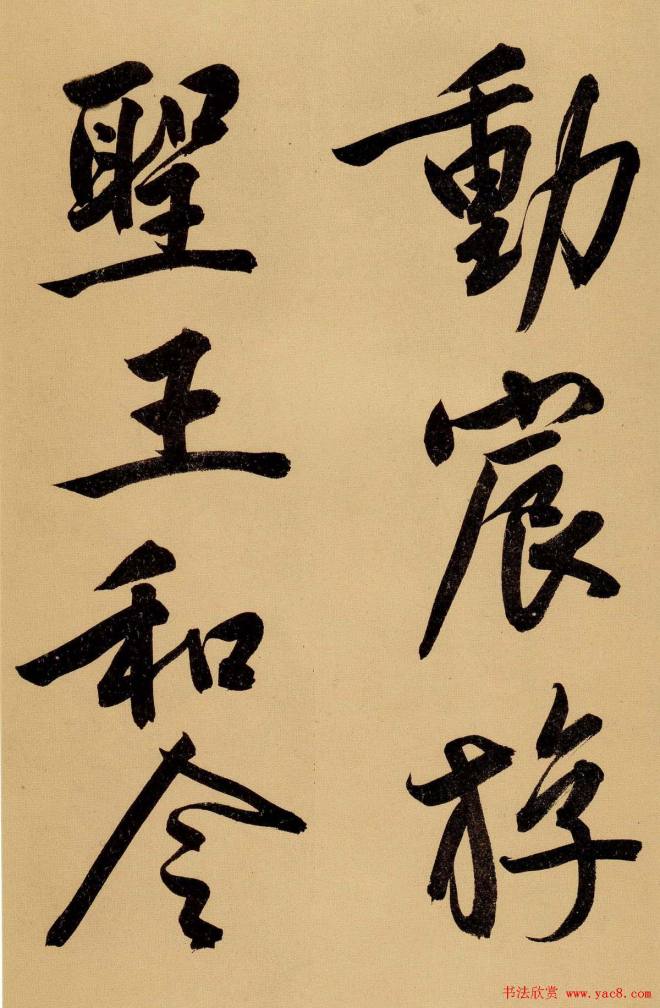 動宸游
聖王和令
书法欣赏 www.yac8.com